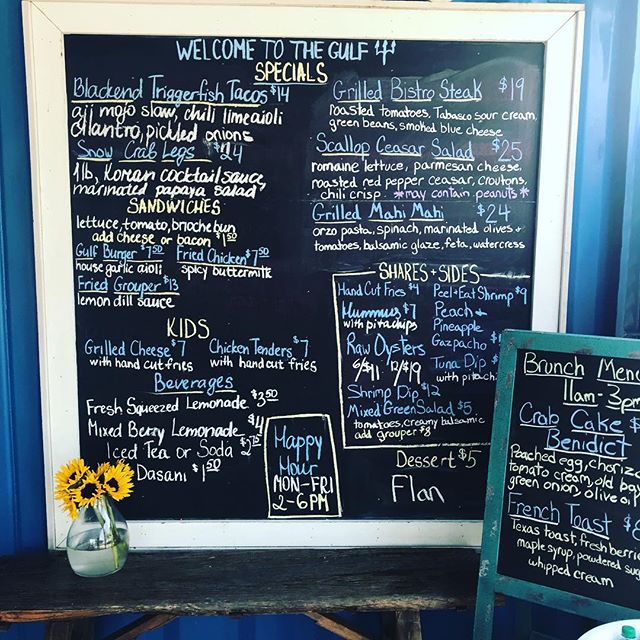 WELCOME TO THE GULF
SPECIALS
Blackend Triggerfish Tacos $14
aji mojo slaw, chili lime aioli
cilantro, pickled onions
Snow Crab Legs $24
1lb, Korean cocktail sauce
marinated papaya salad
SANDWICHES
lettuce, tomato, brioche bun
add cheese or bacon $1.50
Gulf Burger $7.50 Fried Chicken $7.50
house garlic aioli spicy buttermilk
Fried Grouper $13
lemon dill sauce
KIDS
Grilled Cheese $7 Chicken Tenders $7
with hand cut fries with hand cut fries
Beverages
Fresh Squeezed Lemonade $3.50
Mixed Berry Lemonade $4
Iced Tea or Soda
Dasani $1.50
Happy
Hour
MON-FRI
2-6PM
Grilled Bistro Steak $19
roasted tomatoes, Tabasco sour cream,
green beans, smoked blue cheese
Scallop Ceasar Salad $25
romaine lettuce, parmesan cheese,
roasted red pepper ceasar, croutons,
chili crisp *may contain peanuts*
Grilled Mahi Mahi $24
orzo pasta, spinach, marinated olives +
tomatoes, balsamic glaze, feta, watercress
SHARES + SIDES
Hand Cut Fries $4
Hummus $7
with pita chips
Raw Oysters
6/$11 12/$19
Shrimp Dip $12
Mixed Green Salad $5
tomatoes, creamy balsamic
add grouper $8
Peel + Eat Shrimp $9
Peach +
Pineapple
Gazpacho
Tuna Dip
with pita chi
Dessert $5
Flan
Brunch Menu
11am-3pm
Crab Cake $
Benidict
Poached egg, chorizo
tomato cream, old bay
green onion, olive oil
French Toast $
Texas toast, fresh berrie
maple syrup, powdered sug
whipped cream